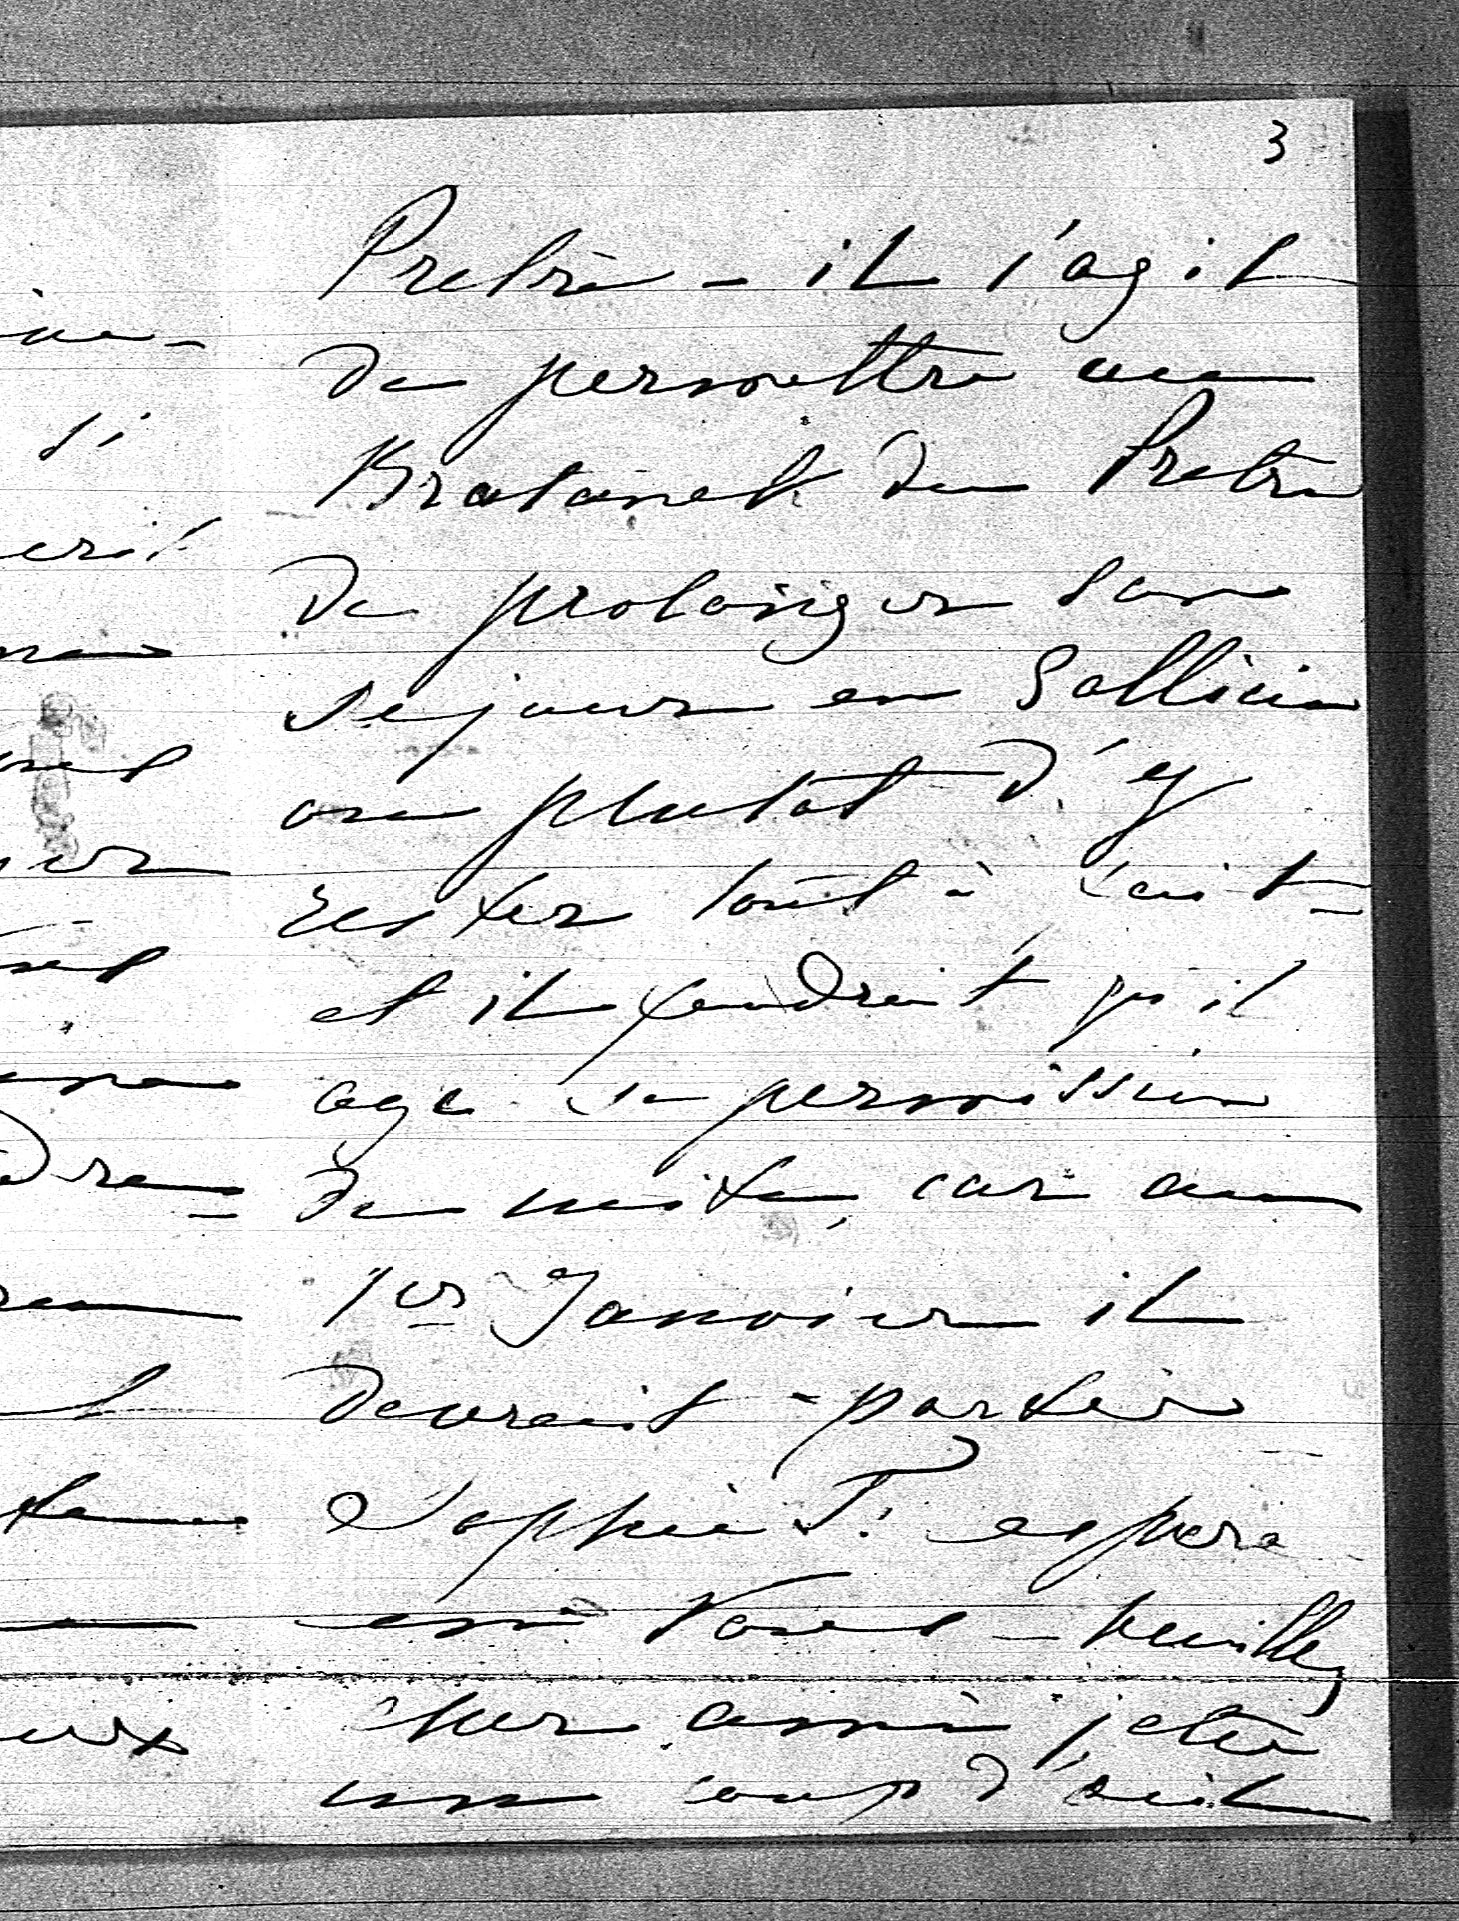 3
Pretre - il s'agit
de permettre au
Bratanek du Pretre
de prolonger son
sejour en Gallicie
ou plutôt d'y
rester tout à fait -
et il faudrait qu'il
aye la permission
de suite, car au
1er Janvier il
devrait partir
Sophie T. espere
en Vous - veuillez
cher ami jeter
un coup d'œil